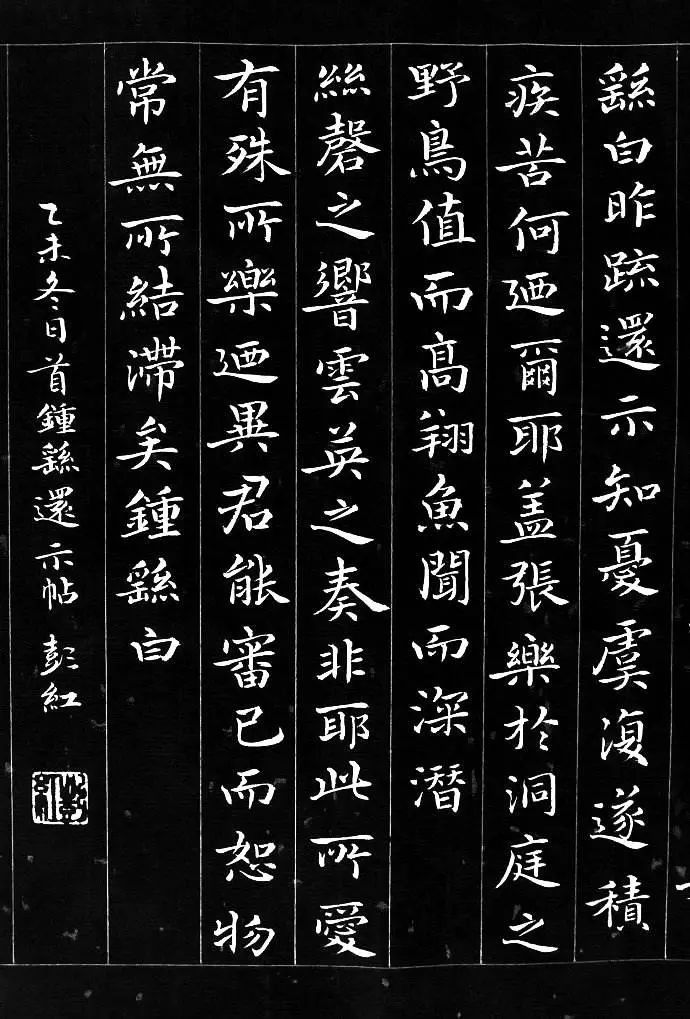 繇白昨疏還示知憂虞復遂積
疾苦何迺爾耶盖張樂於洞庭之
野鳥值而高翔魚聞而深潛
絲磬之響雲英之奏非耶此所愛
有殊所樂迺異君能審己而恕物
常無所結滯矣鍾繇白
乙未冬日首鍾繇還示帖 彭紅